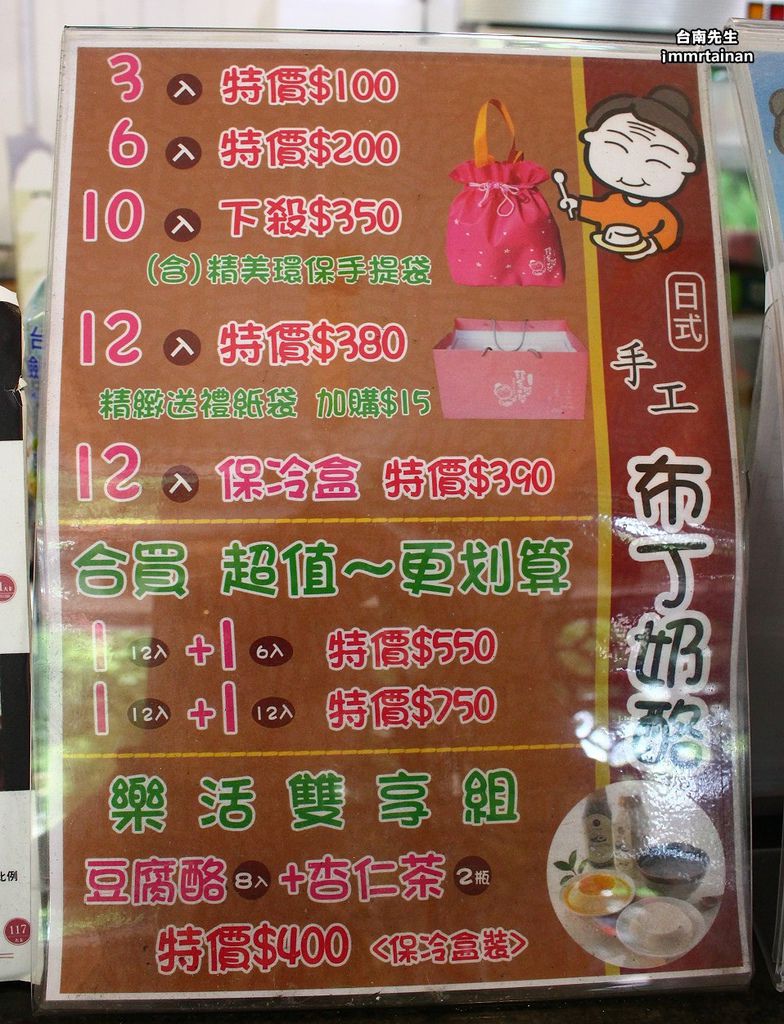 台南先生
jmmrtainan
3入 特價$100
6入 特價$200
10入 下殺$350
(含)精美環保手提袋
12入 特價$380
精緻送禮紙袋 加購$15
12入 保冷盒 特價$390
合買 超值～更划算
1 12入 +1 6入 特價$550
1 12入 +1 12入 特價$750
樂活雙享組
豆腐酪 8入 +杏仁茶 2瓶
特價$400 <保冷盒裝>
日式
手工
布丁奶酪
比例
117